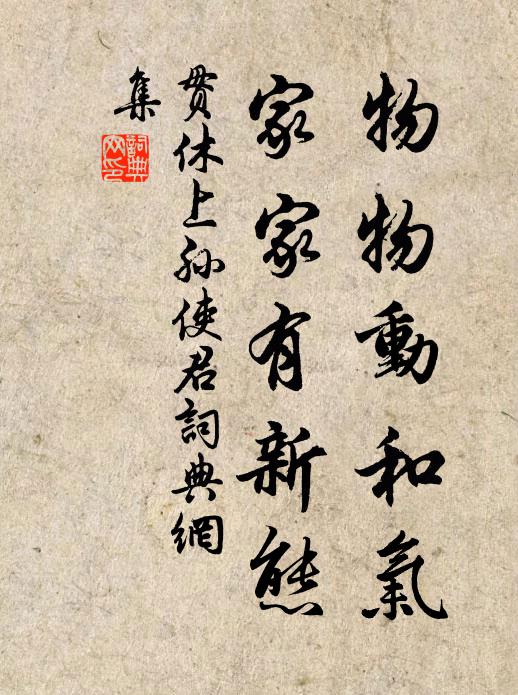 物物動和氣
家家有新態
貫休上孫使君詞典網
集
詞典
网印